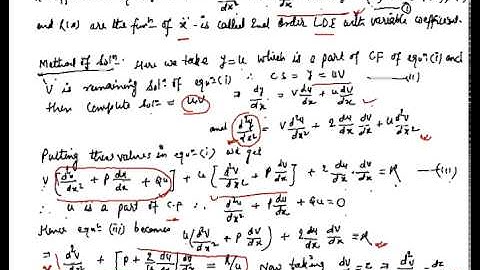 dx² dx
and R(x) are the funⁿ of x is called 2nd order LDE with variable coefficient.
Method of Solⁿ. Here we take y=u which is a part of CF of equⁿ(i) and
V is remaining solⁿ of equⁿ(i) ∴ CS = y = uv —(ii)
then complete solⁿ = uv ⇒ dy/dx = v du/dx + u dv/dx
and d²y/dx² = v d²u/dx² + 2 du/dx dv/dx + u d²v/dx²
Putting these values in equⁿ(i) we get
v [d²u/dx² + P du/dx + Qu] + u [d²v/dx² + P dv/dx] + 2 du/dx · dv/dx = R —(iii)
∴ u is a part of C.F ∴ d²u/dx² + P du/dx + Qu = 0
Hence equⁿ(iii) becomes u (d²v/dx² + P dv/dx) + 2 du/dx dv/dx = R
⇒ d²v/dx² + [P + 2/u du/dx] dv/dx = R/u Now taking dv/dx = z ⇒ d²v/dx² = dz